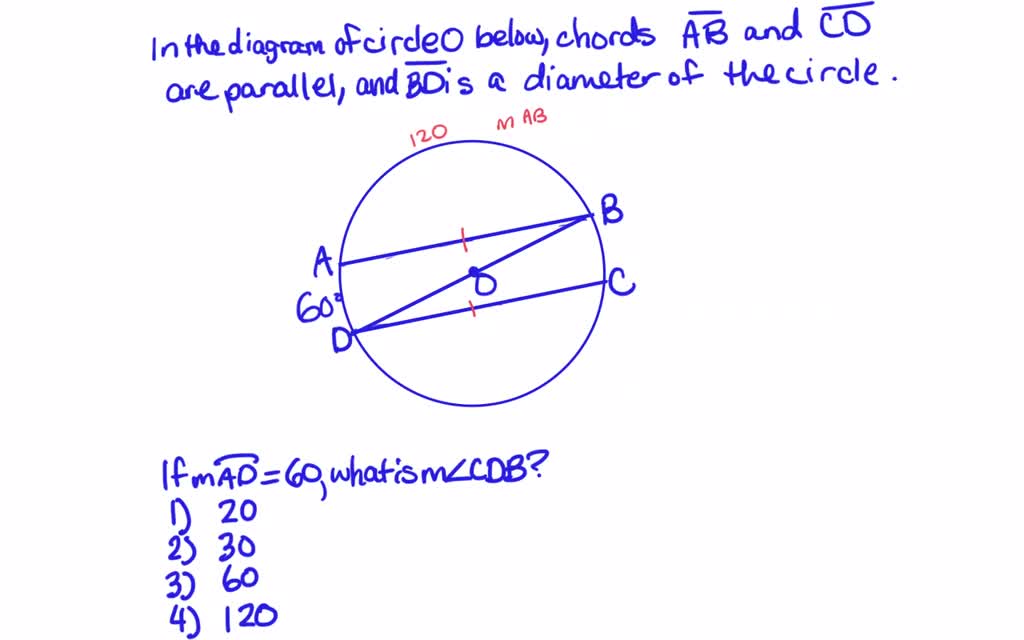 In the diagram of circle O below, chords AB and CD
are parallel, and BD is a diameter of the circle.
120 m AB
B
A
O
C
60°
D
If mAD = 60, what is m∠CDB?
1) 20
2) 30
3) 60
4) 120